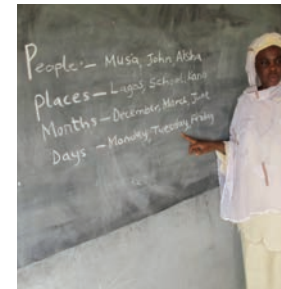 People:- Musa, John Aisha
Places - Lagos, School, Kano
Months - December, March, June
Days - Monday, Tuesday, Friday